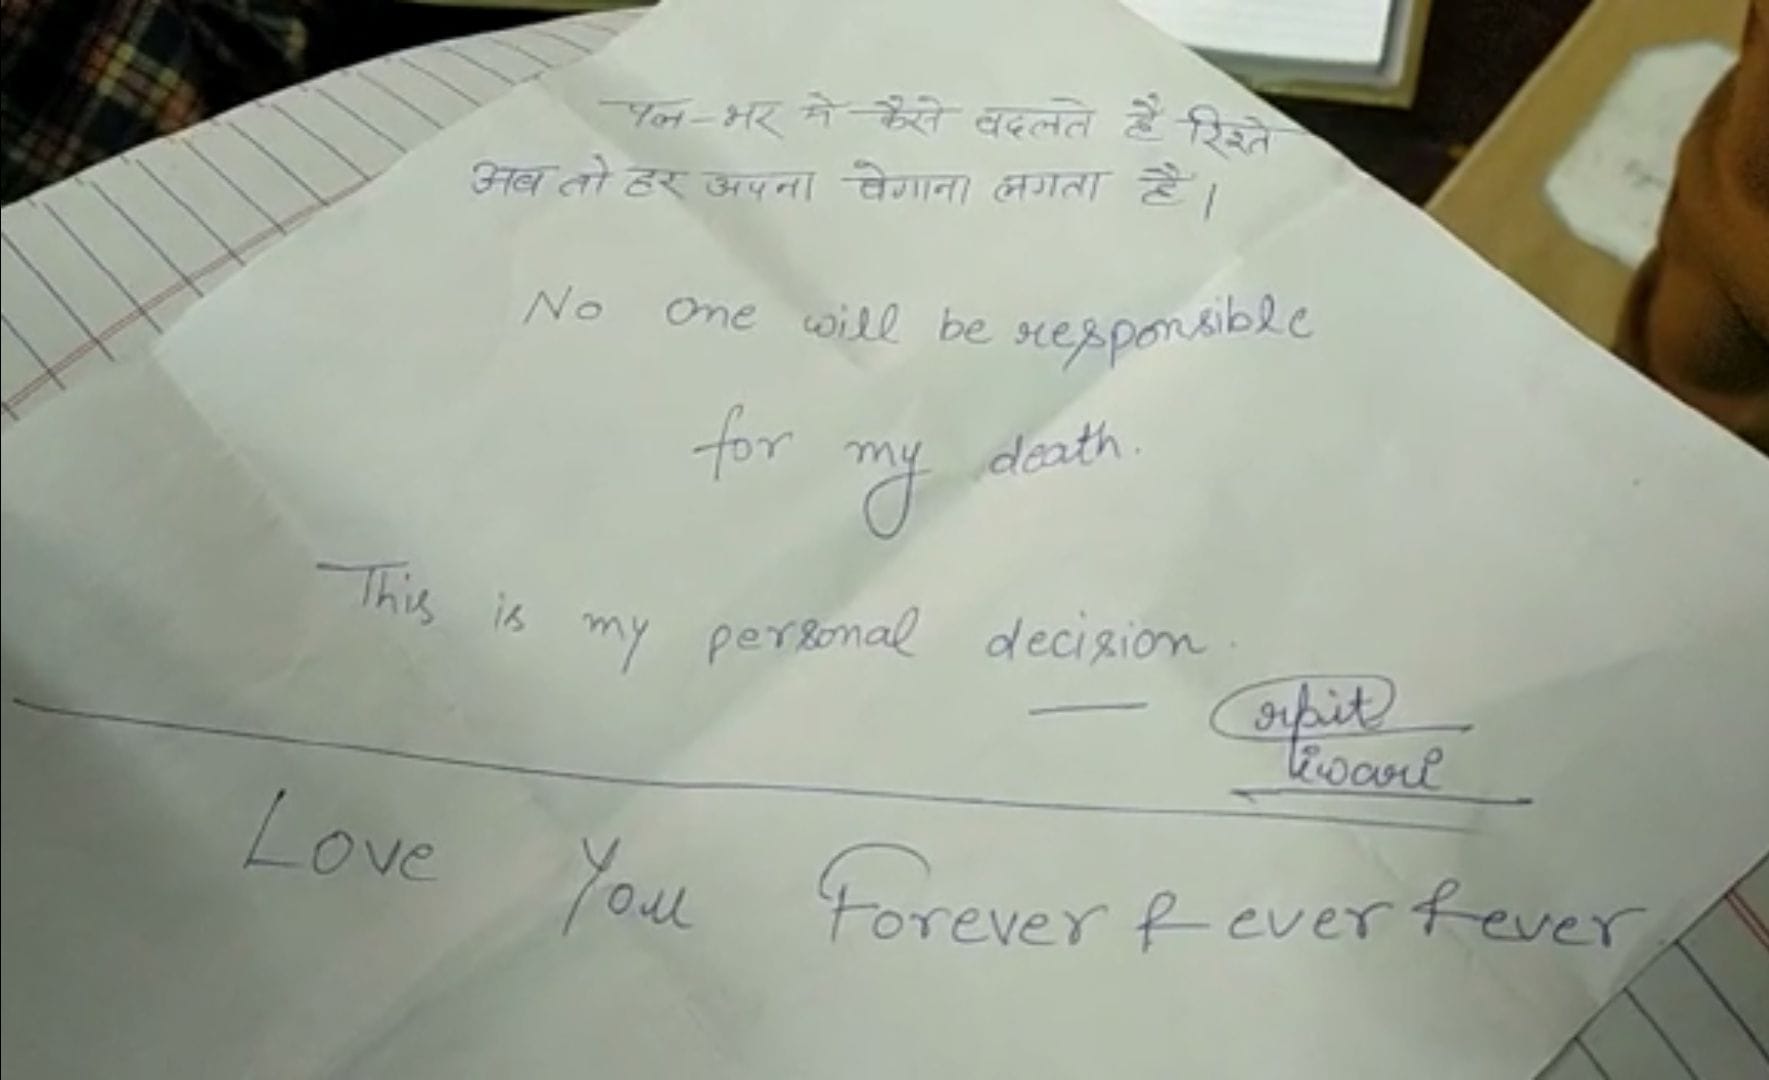 पल-भर मे कैसे बदलते है रिश्ते
अब तो हर अपना बेगाना लगता है।
No one will be responsible
for my death.
This is my personal decision.
— arpit
tiwari
Love You Forever & ever & ever